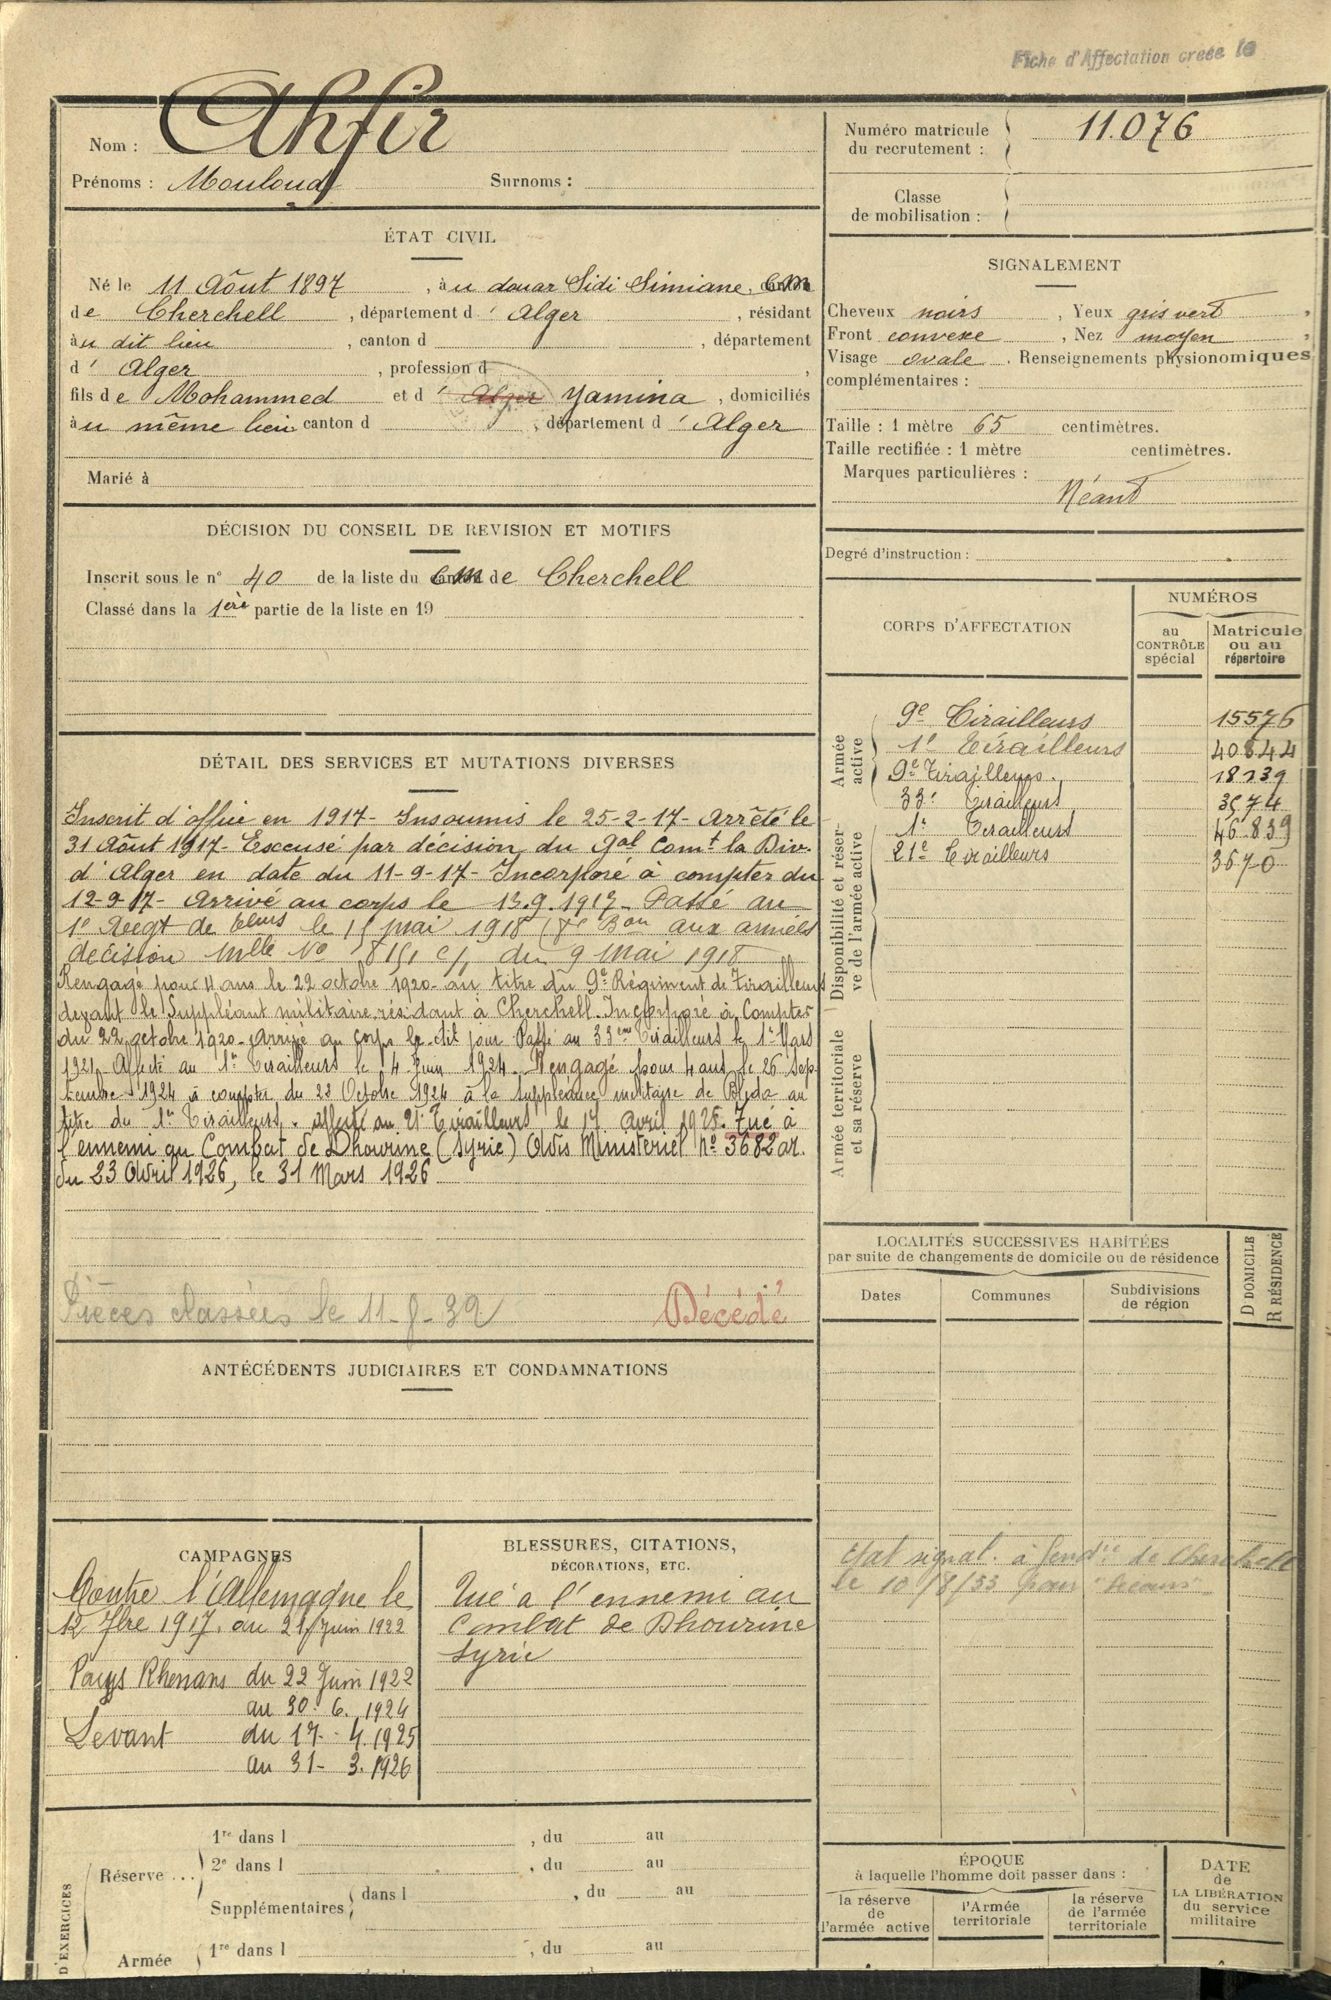 Fiche d'Affectation creée le
Nom : Ahfir
Prénoms : Mouloud Surnoms :
ÉTAT CIVIL
Né le 11 Aôut 1897, àu douar Sidi Simiane, CM
de Cherchell, département d' Alger, résidant
àu dit lieu, canton d , département
d' Alger, profession d ,
fils de Mohammed et d' Alger Yamina, domiciliés
àu même lieu canton d , département d' Alger
Marié à
DÉCISION DU CONSEIL DE REVISION ET MOTIFS
Inscrit sous le n° 40 de la liste du CM de Cherchell
Classé dans la 1ère partie de la liste en 19
DÉTAIL DES SERVICES ET MUTATIONS DIVERSES
Inscrit d'office en 1917- Insoumis le 25-2-17- Arrêté le
31 Aôut 1917- Excusé par décision du Gal Comt la Div.
d'Alger en date du 11-9-17- Incorporé à compter du
12-9-17- Arrivé au corps le 13.9.1917- Passé au
1e Regt de tleurs le mai 1918 aux armées
décision mlle No du 9 mai 1918
Rengagé pour 4 ans le 22 octobre 1920- au titre du 9e Régiment de Tirailleurs
devant le Suppléant militaire résidant à Cherchell. Incorporé à Compter
du 22 octobre 1920- Arrivé au corps le dit jour Passé au 33eme Tirailleurs le 1er Mars
1921. Affecté au 1er Tirailleurs le 4 Juin 1924. Rengagé pour 4 ans le 26 Sep-
tembre 1924 à compter du 22 Octobre 1924 à la Suppléance militaire de Blida au
titre du 1er Tirailleurs. Affecté au 21e Tirailleurs le 17 Avril 1925. Tué à
l'ennemi au Combat de Dhourine (Syrie) Avis Ministeriel No 3682 AZ.
du 23 Avril 1926, le 31 Mars 1926
Pièces classées le 11-8-32 Décédé
ANTÉCÉDENTS JUDICIAIRES ET CONDAMNATIONS
CAMPAGNES
Contre l'Allemagne le
12 7bre 1917. au 21 Juin 1922
Pays Rhenans du 22 Juin 1922
au 30. 6. 1924
Levant du 17- 4. 1925
au 31- 3. 1926
BLESSURES, CITATIONS,
DÉCORATIONS, ETC.
Tué à l'ennemi au
Combat de Dhourine
Syrie
D'EXERCICES
Réserve ... 1re dans l , du au
2e dans l , du au
Supplémentaires dans l , du au
Armée 1re dans l , du au
Numéro matricule
du recrutement : 11.076
Classe
de mobilisation :
SIGNALEMENT
Cheveux noirs, Yeux gris vert,
Front convexe, Nez moyen,
Visage ovale. Renseignements physionomiques
complémentaires :
Taille : 1 mètre 65 centimètres.
Taille rectifiée : 1 mètre centimètres.
Marques particulières :
Néant
Degré d'instruction :
CORPS D'AFFECTATION
NUMÉROS
au
CONTRÔLE
spécial
Matricule
ou au
répertoire
Armée
active
9e Tirailleurs 15576
1e Tirailleurs
9e Tirailleurs. 18139
33e Tirailleurs 3574
Disponibilité et réser-
ve de l'armée active
1er Tirailleurs 46839
21e Tirailleurs 3670
Armée territoriale
et sa réserve
LOCALITÉS SUCCESSIVES HABITÉES
par suite de changements de domicile ou de résidence
Dates
Communes
Subdivisions
de région
D DOMICILE
R RÉSIDENCE
Etat signal. à Gendie de Cherchell
le 10/8/33 pour "Secours"
ÉPOQUE
à laquelle l'homme doit passer dans :
la réserve
de
l'armée active
l'Armée
territoriale
la réserve
de l'armée
territoriale
DATE
de
LA LIBÉRATION
du service
militaire